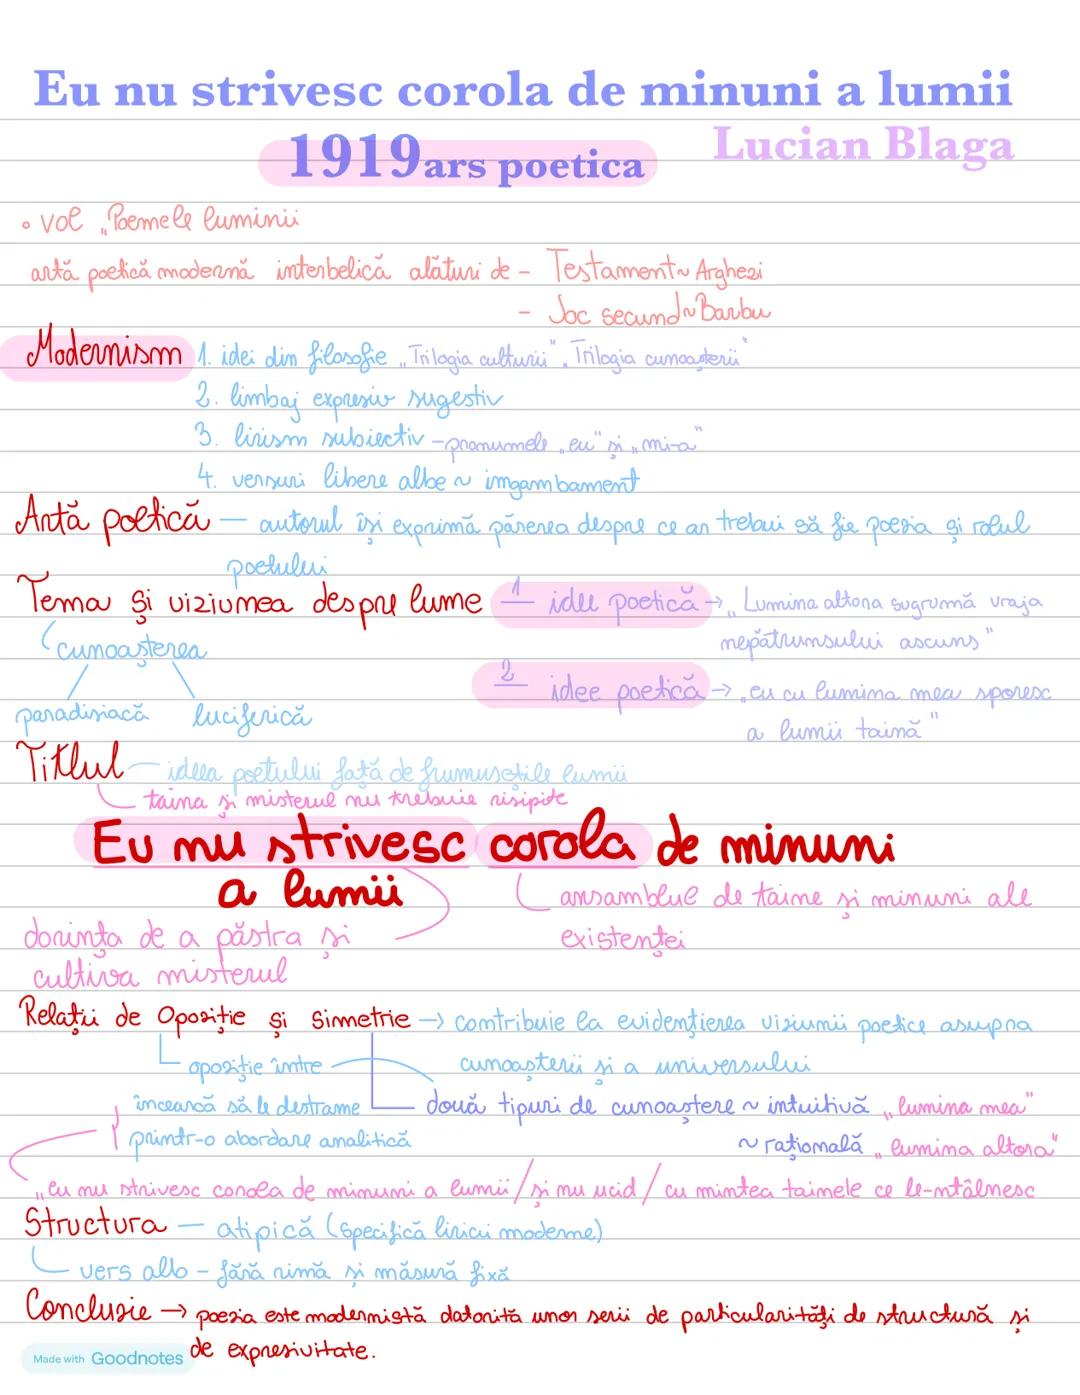 Eu nu strivesc corola de minuni a lumii
1919 ars poetica Lucian Blaga
• vol „Poemele luminii
artă poetică modernă interbelică alături de - Testament ~ Arghezi
- Joc secund ~ Barbu
Modernism 1. idei din filosofie „Trilogia culturii", Trilogia cunoașterii"
2. limbaj expresiv sugestiv
3. lirism subiectiv - pronumele „eu" și „mi-a"
4. versuri libere albe ~ ingambament
Artă poetică — autorul își exprimă părerea despre ce ar trebui să fie poezia și rolul
poetului
Tema și viziunea despre lume 1 idee poetică → „Lumina altora sugrumă vraja
nepătrunsului ascuns"
cunoașterea
2 idee poetică → „eu cu lumina mea sporesc
a lumii taină"
paradisiacă luciferică
Titlul — ideea poetului față de frumusețile lumii
taina și misterul nu trebuie risipite
Eu nu strivesc corola de minuni
a lumii
ansamblul de taine și minuni ale
existenței
dorința de a păstra și
cultiva misterul
Relații de Opoziție și Simetrie → contribuie la evidențierea viziunii poetice asupra
cunoașterii și a universului
opoziție între
două tipuri de cunoaștere ~ intuitivă „lumina mea"
~ rațională „lumina altora"
încearcă să le destrame
printr-o abordare analitică
„eu nu strivesc corola de minuni a lumii / și nu ucid / cu mintea tainele ce le-ntâlnesc
Structura — atipică (specifică liricii moderne)
vers alb - fără rimă și măsură fixă
Concluzie → poezia este modernistă datorită unor serii de particularități de structură și
de expresivitate.
Made with Goodnotes